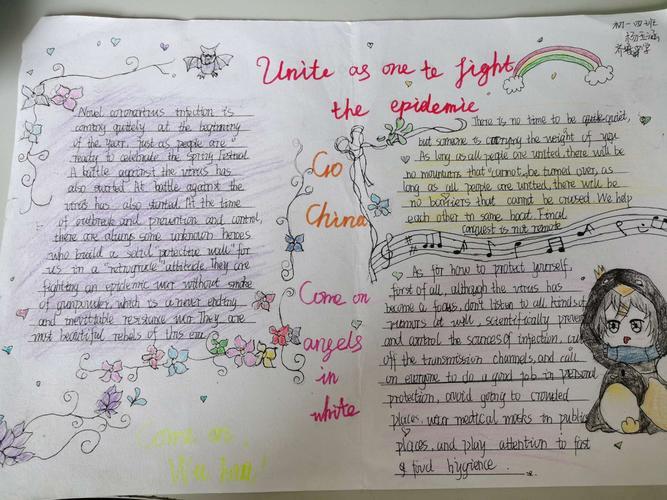 初一四班
Unite as one te fight
the epidemic
Novel coronavirus infection is
coming quitely at the beginning
of the year. just as people are
ready to celebrate the Spring Festival
A battle against the virus has
also started At battle against the
virus has also started. At the time
of outbreak and prevention and control,
there are always some unknown heroes
who breaild a solid protective wall" for
us in a "retrograde" attitude. They are
fighting an epidemic war without smoke
of gunpowder, which is a never ending
and inevititable resistance war They are
most beautiful rebels of this era
Come on,
Wu han!
Go
China
Come on
angels
in
white
There is no time to be quiet,
but someone is carrying the weight of you
As long as all people are united, there will be
no mountains that "cannot be turned over, as
long as all people are united, there will be
no barriers that cannot be crused. We help
each other in same boat. Final
conquest is not remote
As for how to protect yourself,
forst of all, although the virus has
become a focus, don't listen to all kinds of
rumors at well, scientifically prevent
and control the sources of infection, cut
off the transmission channels, and call
on everyone to do a good job in personal
protection, avoid going to crowded
places, wear medical masks in public
places, and play attention to fost
& food hygience.